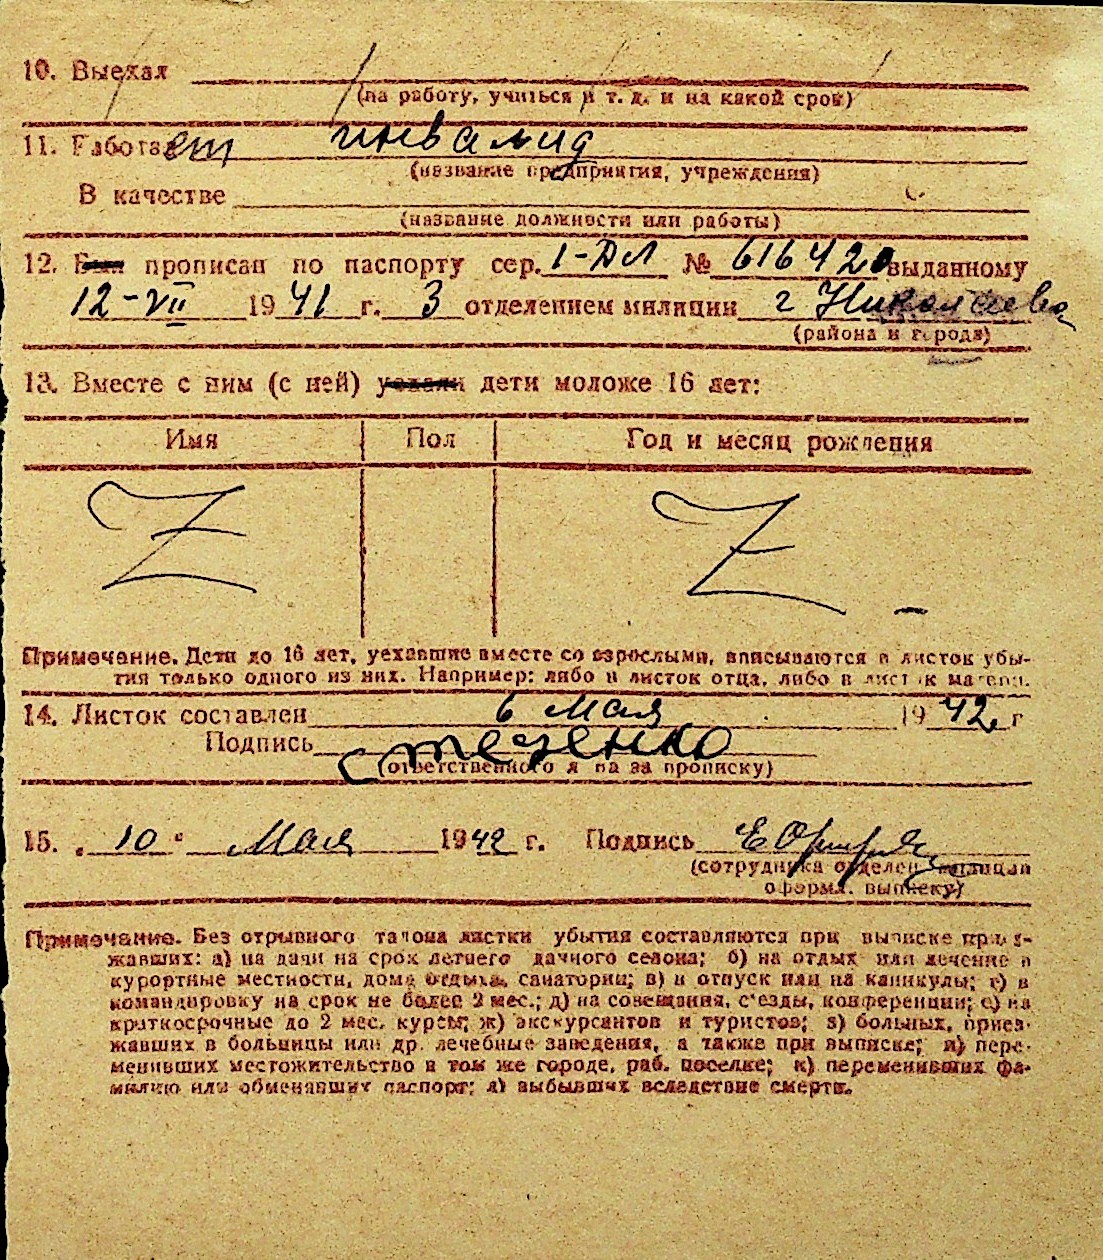 10. Выехал
(на работу, учиться и т. д. и на какой срок)
11. Работает инвалид
(название предприятия, учреждения)
В качестве
(название должности или работы)
12. Был прописан по паспорту сер. 1-ДЛ № 616420 выданному
12-VII 1941 г. 3 отделением милиции г Николаева
(района и города)
13. Вместе с ним (с ней) уехали дети моложе 16 лет:
Имя Пол Год и месяц рождения
Z Z –
Примечание. Дети до 16 лет, уехавшие вместе со взрослыми, вписываются в листок убы-
тия только одного из них. Например: либо в листок отца, либо в листок матери.
14. Листок составлен 6 Мая 1942 г
Подпись
(ответственного за прописку)
15. „10“ Мая 1942 г. Подпись
(сотрудника отделен. милиции
оформл. выписку)
Примечание. Без отрывного талона листки убытия составляются при выписке приез-
жавших: а) на дачи на срок летнего дачного сезона; б) на отдых или лечение в
курортные местности, дома отдыха, санатории; в) в отпуск или на каникулы; г) в
командировку на срок не более 2 мес.; д) на совещания, с'езды, конференции; е) на
краткосрочные до 2 мес. курсы; ж) экскурсантов и туристов; з) больных, приез-
жавших в больницы или др. лечебные заведения, а также при выписке; и) пере-
менивших местожительство в том же городе, раб. поселке; к) переменивших фа-
милию или обменявших паспорт; л) выбывших вследствие смерти.